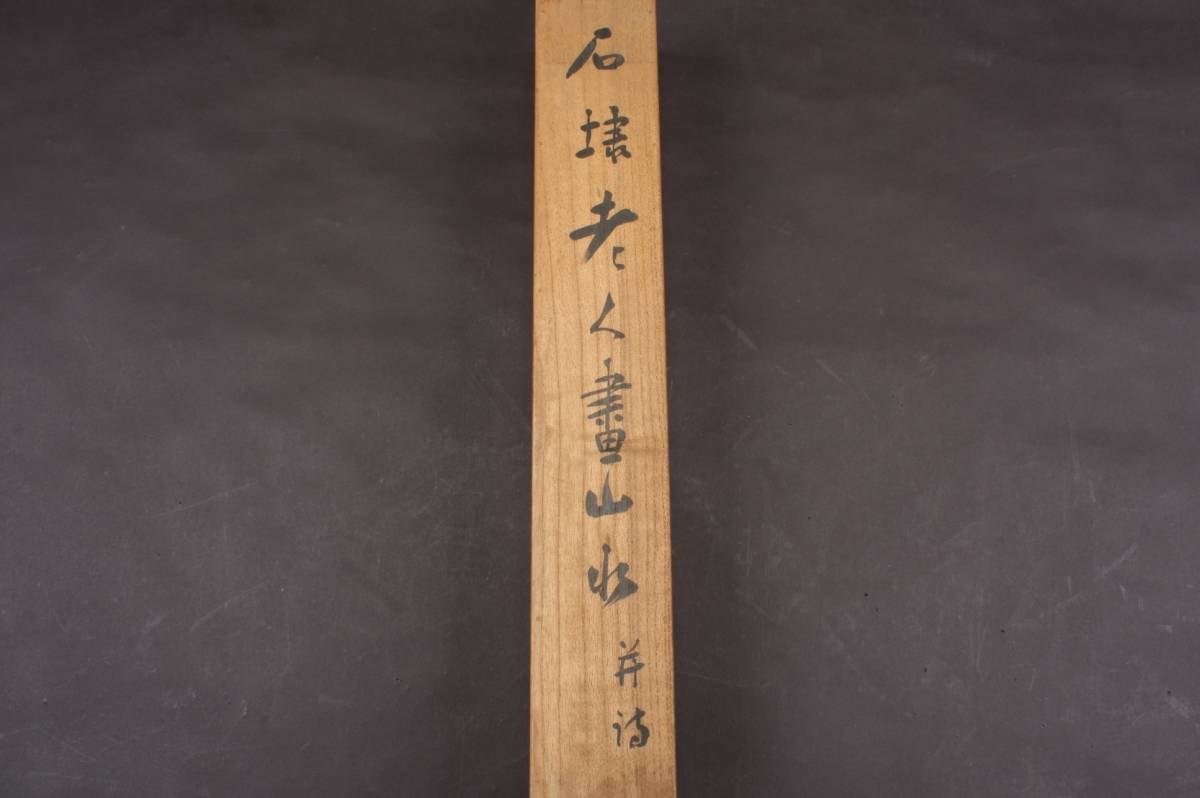 石埭老人畫山水
并詩